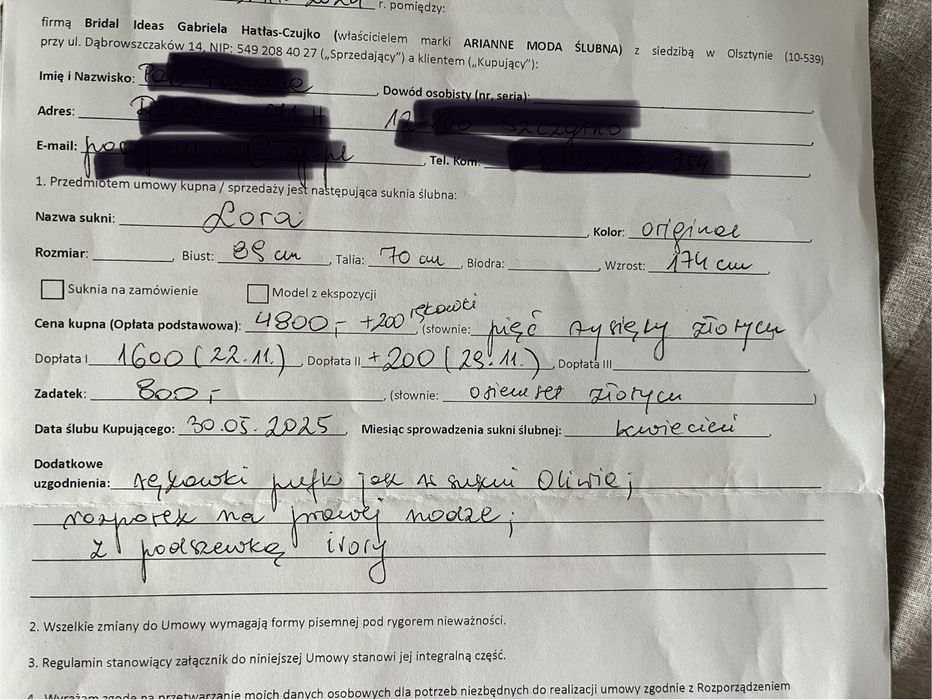 r. pomiędzy:
firmą Bridal Ideas Gabriela Hatłas-Czujko (właścicielem marki ARIANNE MODA ŚLUBNA) z siedzibą w Olsztynie (10-539)
przy ul. Dąbrowszczaków 14, NIP: 549 208 40 27 („Sprzedający") a klientem („Kupujący"):
Imię i Nazwisko: Dowód osobisty (nr, seria):
Adres:
E-mail: Tel. Kom:
1. Przedmiotem umowy kupna / sprzedaży jest następująca suknia ślubna:
Nazwa sukni: Lora Kolor: original
Rozmiar: Biust: 88 cm, Talia: 70 cm, Biodra: , Wzrost: 174 cm
Suknia na zamówienie Model z ekspozycji
Cena kupna (Opłata podstawowa): 4800,- +200 rękawki (słownie: pięć tysięcy złotych
Dopłata I 1600 (22.11.), Dopłata II +200 (23.11.), Dopłata III
Zadatek: 800,- , (słownie: osiemset złotych )
Data ślubu Kupującego: 30.05.2025, Miesiąc sprowadzenia sukni ślubnej: kwiecień
Dodatkowe
uzgodnienia: rękawki pufki jak w sukni Oliwie;
rozporek na prawej nodze;
z podszewką ivory
2. Wszelkie zmiany do Umowy wymagają formy pisemnej pod rygorem nieważności.
3. Regulamin stanowiący załącznik do niniejszej Umowy stanowi jej integralną część.
4. Wyrażam zgodę na przetwarzanie moich danych osobowych dla potrzeb niezbędnych do realizacji umowy zgodnie z Rozporządzeniem